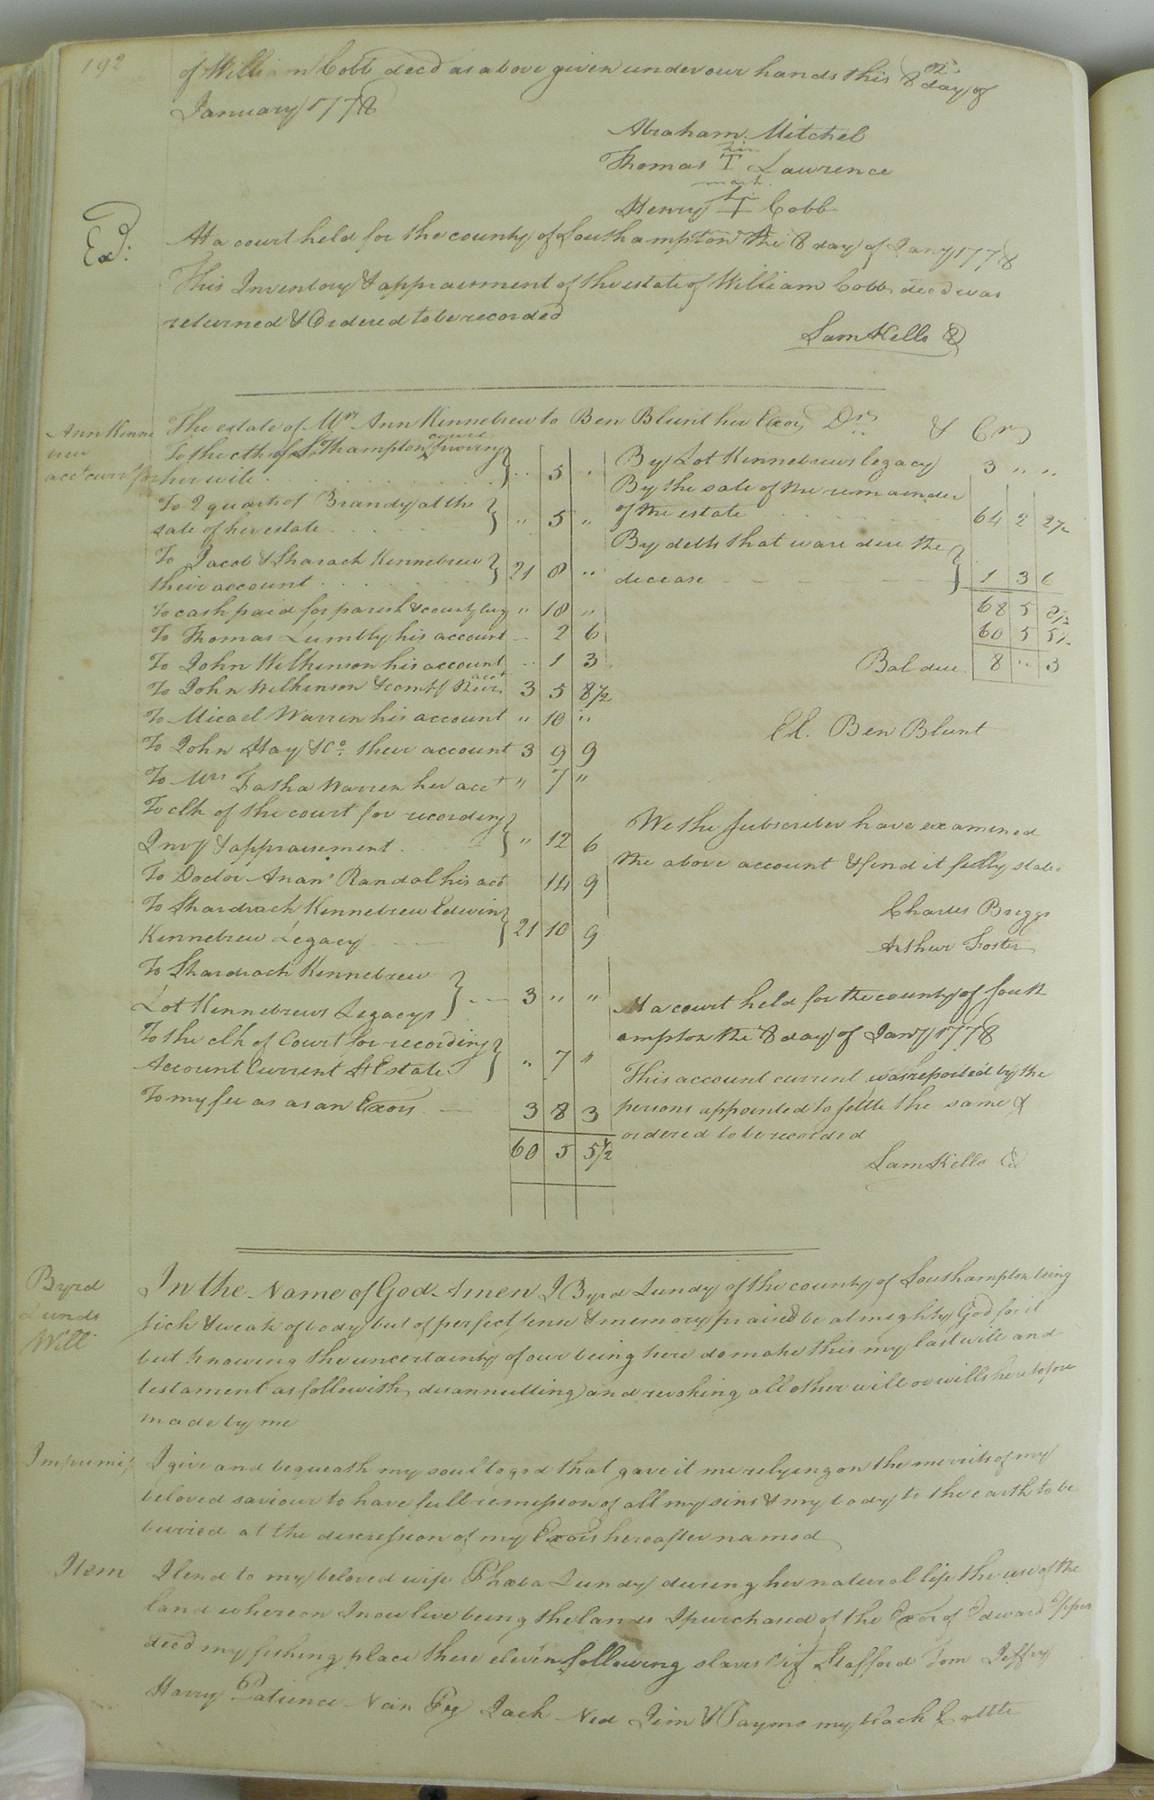 192
of William Cobb decd as above given under our hands this 8th day of
January 1778
Abraham Mitchel
his
Thomas T Lawrence
mark
his
Henry I Cobb
Ed.
At a court held for the county of Southampton the 8 day of Jany 1778
This Inventory & appraisment of the estate of William Cobb decd was
returned & Ordered to be recorded
Sam Kello
Ann Kenne
brew
acct curr't
The estate of Mrs Ann Kennebrew to Ben Blunt her Exor Dr
To the clk of S. Thampton court proving
for her will } .. 5 "
To 2 quarts of Brandy at the
sale of her estate } " 5 "
To Jacob & Sharach Kennebrew
their account } 21 8 "
To cash paid for parish & county levy " 18 "
To Thomas Lumbly his account .. 2 6
To John Wilkinson his account .. 1 3
To John Wilkinson & Comp 3 5 8 1/2
To Micael Warren his account " 10 "
To John Hay & Co. their account 3 9 9
To Mrs Tatha Warren her acct " 7 "
To clk of the court for recording
Invy & appraisement } " 12 6
To Doctor Anan' Randal his acct 14 9
To Shardrach Kennebrew Edwin
Kennebrew Legacy } 21 10 9
To Shardrach Kennebrew
Lot Kennebrews Legacys } 3 " "
To the clk of Court for recording
Account Current & Estate } " 7 "
To my fee as as an Exors 3 8 3
60 5 5 1/2
& Cr
By Lot Kennebrews legacy 3 " "
By the sale of the remainder
of the estate 64 2 2 1/2
By debts that ware due the
decease } 1 3 6
68 5 8 1/2
60 5 5 1/2
Bal due 8 .. 3
Ex. Ben Blunt
We the subscriber have examined
the above account & find it fully state
Charles Briggs
Arthur Foster
At a court held for the county of South
ampton the 8 day of Jany 1778
This account current was reported by the
persons appointed to settle the same &
ordered to be recorded
Sam Kello
Byrd
Lunds
Will
In the Name of God Amen I Byrd Lundy of the county of Southampton being
sick & weak of body but of perfect sense & memory praised be almighty God for it
but knowing the uncertainty of our being here do make this my last will and
testament as followith disannulling and revoking all other will or wills heretofore
made by me
Impnmis I give and bequeath my soul to god that gave it me relying on the merrits of my
beloved saviour to have full remission of all my sins & my body to the earth to be
buried at the discression of my Exors hereafter named
Item I lend to my beloved wife Phaba Lundy during her natural life the use of the
land whereon I now live being the lands I purchased of the Exor of Edward
decd my fishing place these eleven following slaves Viz Stafford Tom Jeffry
Harry Patience Nan Peg Jack Ned Jim & Jayms my black Cattle